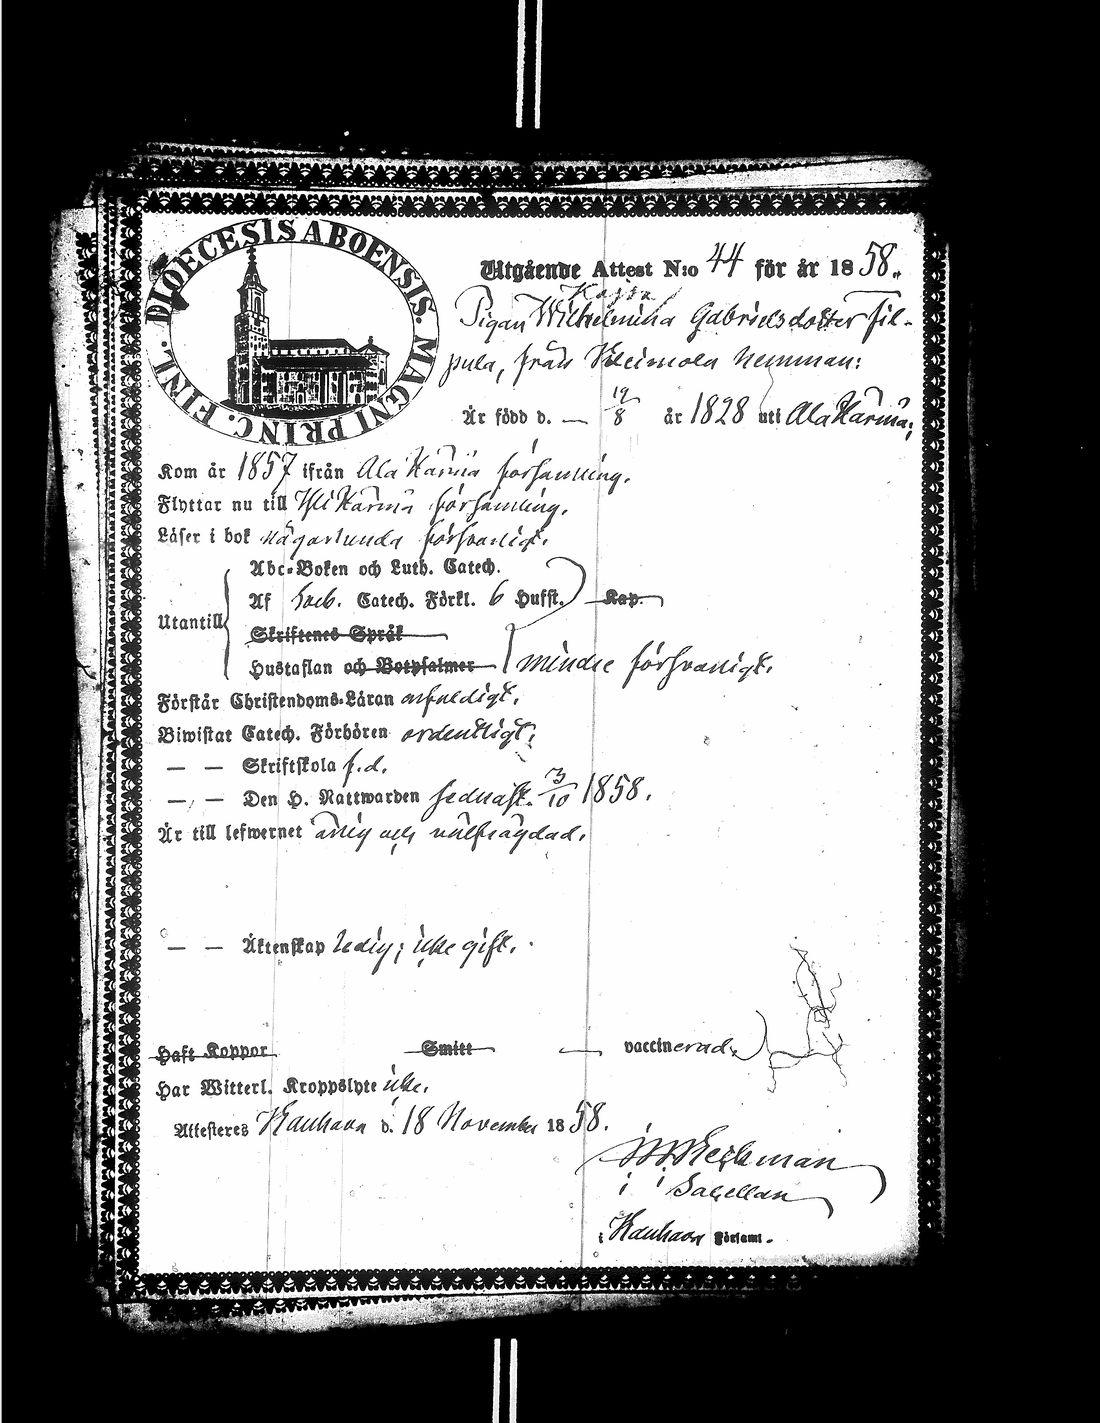 DIOECESIS ABOENSIS. MAGNI PRINC. FINL.
Utgående Attest N:o 44 för år 1858.
Kajsa
Pigan Wilhelmina Gabrielsdotter Fil-
pula, från Kleimola hemman:
Är född d. — 19/8 år 1828 uti Ala Härmä;
Kom år 1857 ifrån Ala Härmä församling.
Flyttar nu till Yli Härmä församling.
Läser i bok någorlunda försvarligt.
Abc-Boken och Luth. Catech.
Utantill Af Sveb. Catech. Förkl. 6 Hufst. Kap.
Skriftenes Språk
Hustaflan och Botpsalmer mindre försvarligt.
Förstår Christendoms-Läran enfaldigt.
Biwistat Catech. Förhören ordentligt.
— — Skriftskola f.d.
— — Den H. Nattwarden sednast. 3/10 1858.
Är till lefwernet ärlig och välfrägdad.
— — Äktenskap ledig; icke gift.
Haft Koppor Smitt — vaccinerad.
Har Witterl. Kroppslyte icke.
Attesteres Kauhava d. 18 November 1858.
Sacellan
i Kauhava Församl.